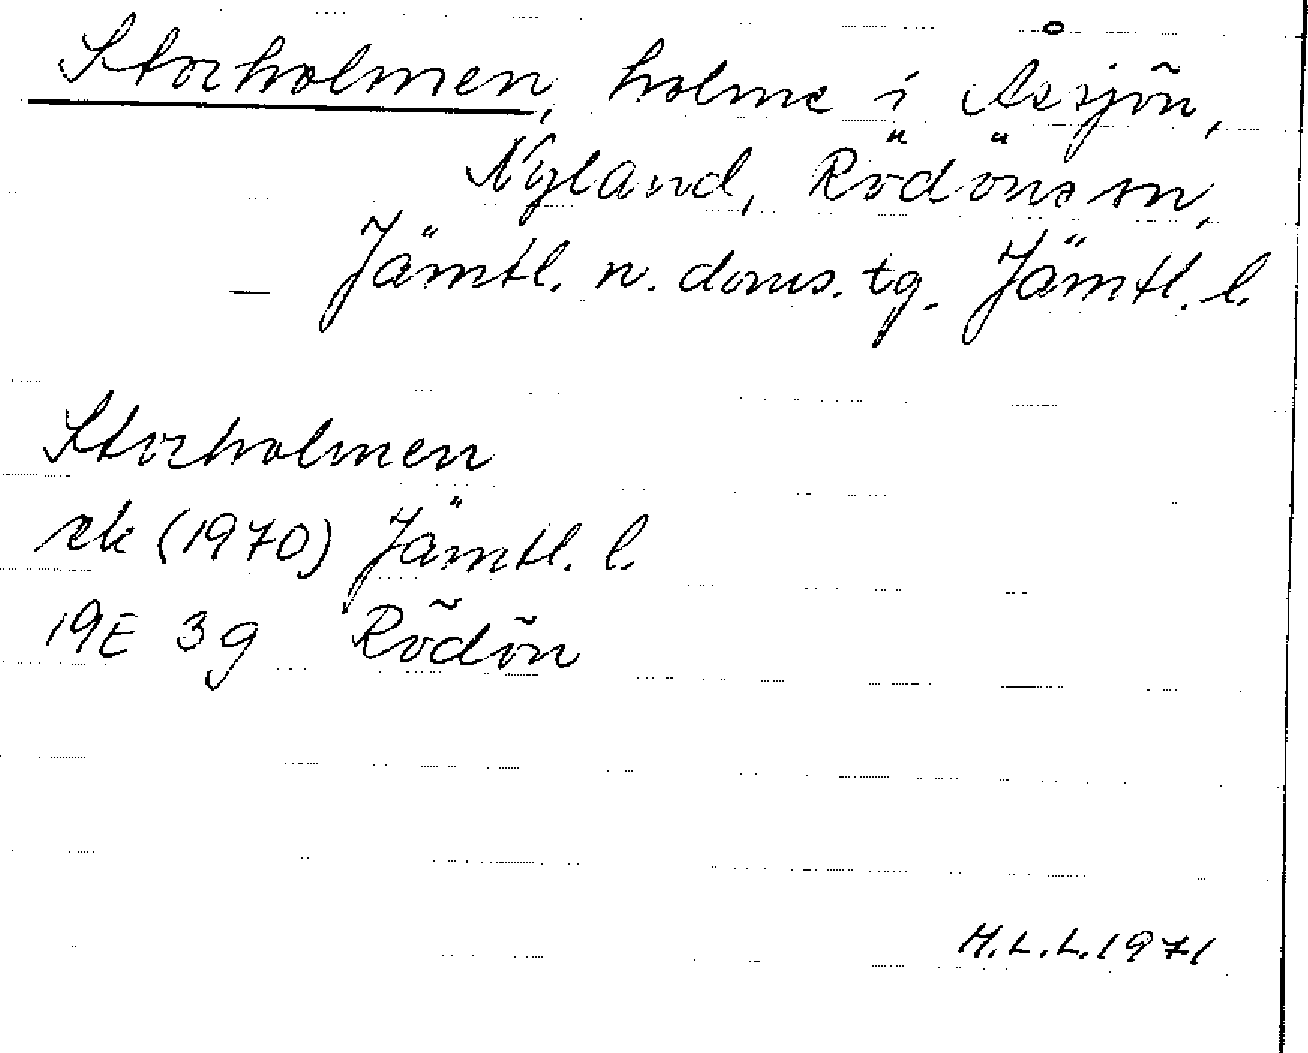 Storholmen, holme i Åssjön,
Nyland, Rödöns sn,
Jämtl. n. doms. tg. Jämtl. l.
Storholmen
ek (1970) Jämtl. l.
19E 3g Rödön
H.L.L. 1971